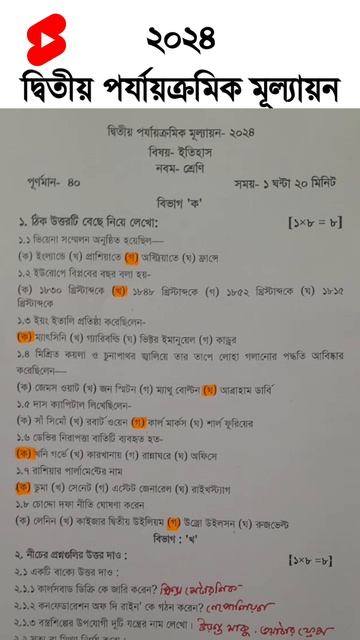 ২০২৪
দ্বিতীয় পর্যায়ক্রমিক মূল্যায়ন
দ্বিতীয় পর্যায়ক্রমিক মূল্যায়ন- ২০২৪
বিষয়- ইতিহাস
নবম- শ্রেণি
পূর্ণমান- ৪০ সময়- ১ ঘন্টা ২০ মিনিট
বিভাগ 'ক'
১. ঠিক উত্তরটি বেছে নিয়ে লেখো: [১×৮ = ৮]
১.১ ভিয়েনা সম্মেলন অনুষ্ঠিত হয়েছিল—
(ক) ইংল্যান্ডে (খ) প্রাশিয়াতে (গ) অস্ট্রিয়াতে (ঘ) ফ্রান্সে
১.২ ইউরোপে বিপ্লবের বছর বলা হয়-
(ক) ১৮৩০ খ্রিস্টাব্দকে (খ) ১৮৪৮ খ্রিস্টাব্দকে (গ) ১৮৫২ খ্রিস্টাব্দকে (ঘ) ১৮১৫
খ্রিস্টাব্দকে
১.৩ ইয়ং ইতালি প্রতিষ্ঠা করেছিলেন-
(ক) ম্যাৎসিনি (খ) গ্যারিবল্ডি (গ) ভিক্টর ইমানুয়েল (গ) কাভুর
১.৪ মিশ্রিত কয়লা ও চুনাপাথর জ্বালিয়ে তার তাপে লোহা গলানোর পদ্ধতি আবিষ্কার
করেছিলেন—
(ক) জেমস ওয়াট (খ) জন স্মিটন (গ) ম্যাথু বোল্টন (ঘ) আব্রাহাম ডার্বি
১.৫ দাস ক্যাপিটাল লিখেছিলেন-
(ক) সাঁ সিমোঁ (খ) রবার্ট ওয়েন (গ) কার্ল মার্কস (ঘ) শার্ল ফুরিয়ের
১.৬ ডেভির নিরাপত্তা বাতিটি ব্যবহৃত হত-
(ক) খনি গর্ভে (খ) কারখানায় (গ) রান্নাঘরে (ঘ) অফিসে
১.৭ রাশিয়ার পার্লামেন্টের নাম
(ক) ডুমা (খ) সেনেট (গ) এস্টেট জেনারেল (ঘ) রাইখস্ট্যাগ
১.৮ চোদ্দো দফা নীতি ঘোষণা করেন
(ক) লেনিন (খ) কাইজার দ্বিতীয় উইলিয়ম (গ) উড্রো উইলসন (ঘ) রুজভেল্ট
বিভাগ : 'খ'
২. নীচের প্রশ্নগুলির উত্তর দাও : [১×৮ =৮]
২.১ একটি বাক্যে উত্তর দাও :
২.১.১ কার্লসবাড ডিক্রি কে জারি করেন? প্রিন্স মেটারনিক
২.১.২ কনফেডারেশন অফ দি রাইন' কে গঠন করেন? নেপোলিয়ন
২.১.৩ বস্ত্রশিল্পের উপযোগী দুটি যন্ত্রের নাম লেখো।